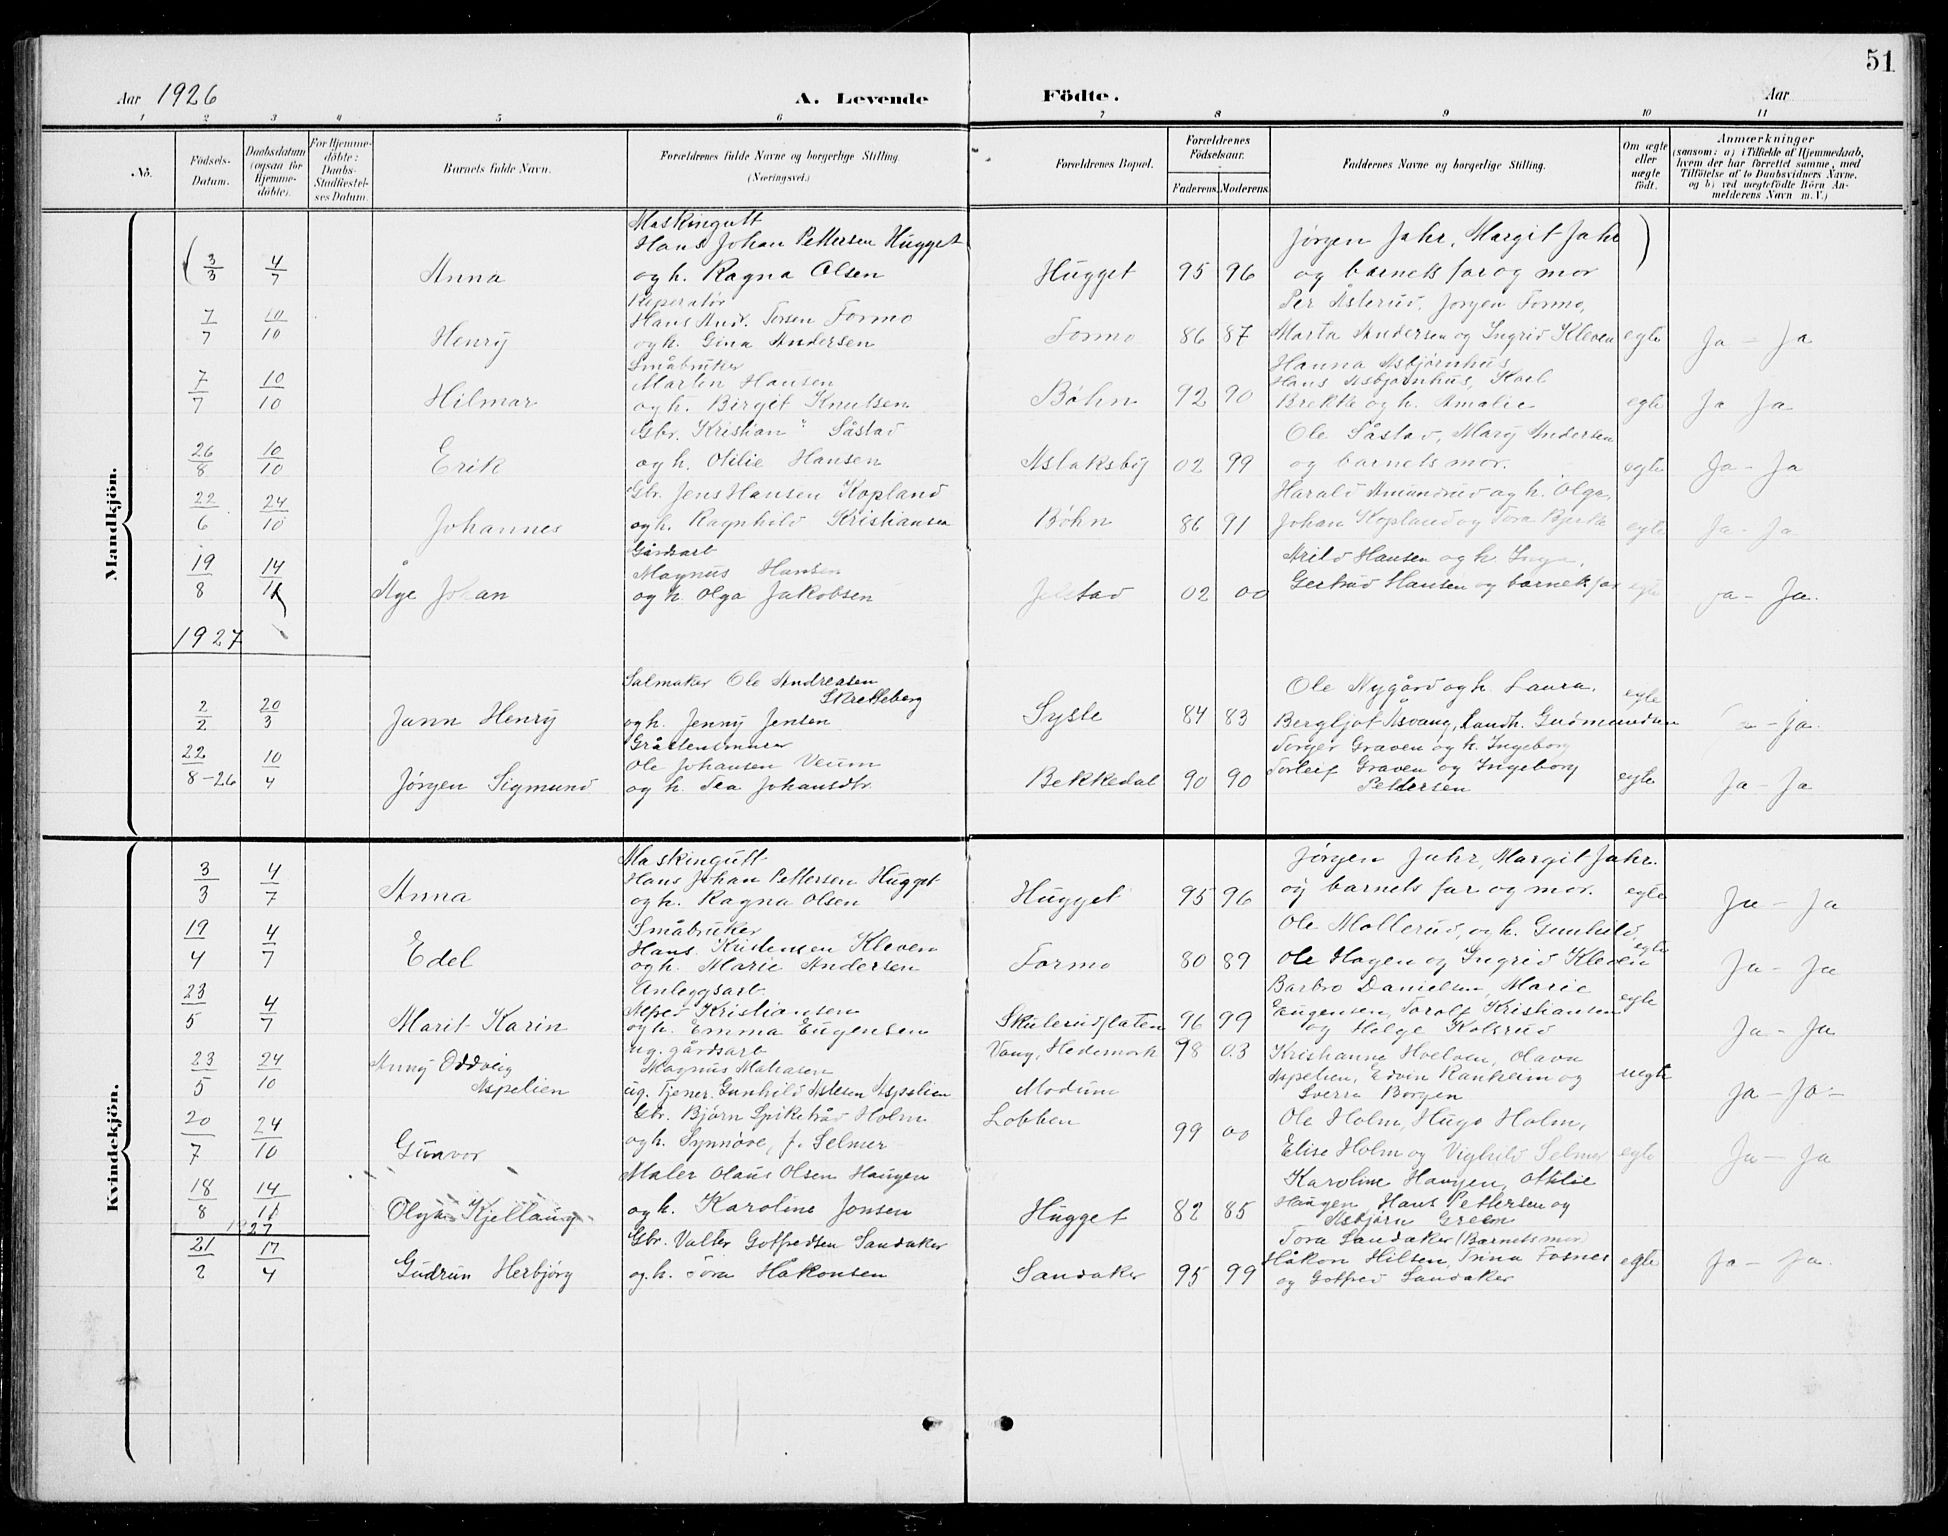 51
Aar 1926
A. Levende
Födte.
Aar
1 2 3 4 5 6 7 8 9 10 11
No.
Födsels-Datum.
Daabsdatum (ogsaa for Hjemmedöbte).
For Hjemmedöbte: Daabs-Stadfæstelses Datum.
Barnets fulde Navn.
Forældrenes fulde Navne og borgerlige Stilling. (Næringsvei.)
Forældrenes Bopæl.
Forældrenes Födselsaar.
Faderens. Moderens.
Faddernes Navne og borgerlige Stilling.
Om ægte eller uægte födt.
Anmærkninger
(saasom: a) i Tilfælde af Hjemmedaab, hvem der har forrettet samme, med Tilföielse af to Daabsvidners Navne, og b) ved uægtefödte Börn Anmelderens Navn m. V.)
Mandkjön.
Maskingutt
Hans Johan Pettersen Hugget
Jörgen Jahr, Margit Jahr
(3/3 4/7 Anna og h. Ragna Olsen Hugget 95 96 og barnets far og mor )
Reperatør
Per Åsterud, Jørgen Formo,
Hans And. Torsen Formo
7/7 10/10 Henry og h. Gina Andersen Formo 86 87 Marta Andersen og Ingrid Kleven egte Ja - Ja
Småbruker
Hanna Asbjørnhus
Martin Hansen
Hans Asbjørnhus, Karl
7/7 10/10 Hilmar og h. Birgit Knutsen Bøhn 92 90 Brekke og h. Amalie egte Ja Ja
Gbr. Kristian " Såstad
Ole Såstad, Mary Andersen
26/8 10/10 Erik og h. Otilie Hansen Aslaksby 02 99 og barnets mor. egte Ja - Ja
Gbr. Jens Hansen Kopland
Harald Amundrud og h. Olga,
22/6 24/10 Johannes og h. Ragnhild Kristiansen Bøhn 86 91 Johan Kopland og Tora Bjerke egte Ja - Ja
Gårdsarb
Arild Hansen og h. Inga,
Magnus Hansen
19/8 14/11 Åge Johan og h. Olga Jakobsen Jelstad 02 00 Gertrud Hansen og barnets far egte Ja - Ja.
1927
Salmaker Ole Andreasen
Skretteberg
Ole Nygård og h. Laura.
2/2 20/3 Jann Henry og h. Jenny Jensen Sysle 84 83 Bergljot Åsvang, Landh. Gudmundsen egte Ja - Ja.
Gråstensmurer
Torger Graven og h. Ingeborg
Ole Johansen Veum
Torleif Graven og Ingeborg
22/8-26 10/4 Jørgen Sigmund og h. Tea Johansdtr Bekkedal 90 90 Pettersen egte Ja - Ja
Kvindekjön.
Maskingutt
Jörgen Jahr, Margit Jahr.
Hans Johan Pettersen Hugget
3/3 4/7 Anna og h. Ragna Olsen Hugget 95 96 og barnets far og mor. egte Ja - Ja
Småbruker
Ole Mollerud og h. Gunhild,
Hans Kristensen Kleven
19/4 4/7 Edel og h. Marie Andersen Formo 80 89 Ole Hagen og Ingrid Kleven egte Ja - Ja
Anleggsarb
Barbro Danielsen, Marie
Alfred Kristiansen
Eugensen, Torolf Kristiansen
23/5 4/7 Marit Karin og h. Emma Eugensen Skulerudflaten 96 99 og Helge Kolsrud egte Ja - Ja
ug. gårdsarb
Vang, Hedemark 98 03
Magnus Mahasen
23/5 24/10 Anny Oddveig Aspelien ug. Tjener. Gunhild Aslesen Aspelien Modum uegte Ja - Ja -
Aspelien, Edvin Ranheim og
Sverre Borgen
Gbr. Bjørn Spiketråd Holm Lobben
Ole Holm, Hugo Holm,
20/7 24/10 Gunvor og h. Synnøve, f. Selmer 99 00 Elise Holm og Vighild Selmer egte Ja - Ja
Maler Olaus Olsen Haugen
Karoline Haugen, Othlie
18/8 14/11 Kjellaug og h. Karoline Jonsen Hugget 82 85 Haugen, Hans Pettersen og
Asbjørn Green
1927
Gbr. Valter Gotfredsen Sandaker
Tora Sandaker (Barnets mor)
21/2 17/4 Gudrun Herbjørg og h. Tora Håkonsen Sandaker 95 99 Håkon Hilsen, Trina Fosnes egte Ja - Ja.
og Gotfred Sandaker